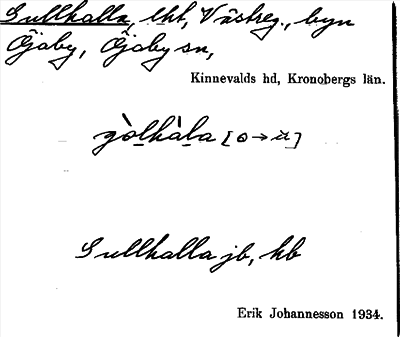 Gullhalla, lht, Västreg., byn
Öjaby, Öjaby sn,
Kinnevalds hd, Kronobergs län.
gòlhàla [o→u]
Gullhalla jb, hb
Erik Johannesson 1934.